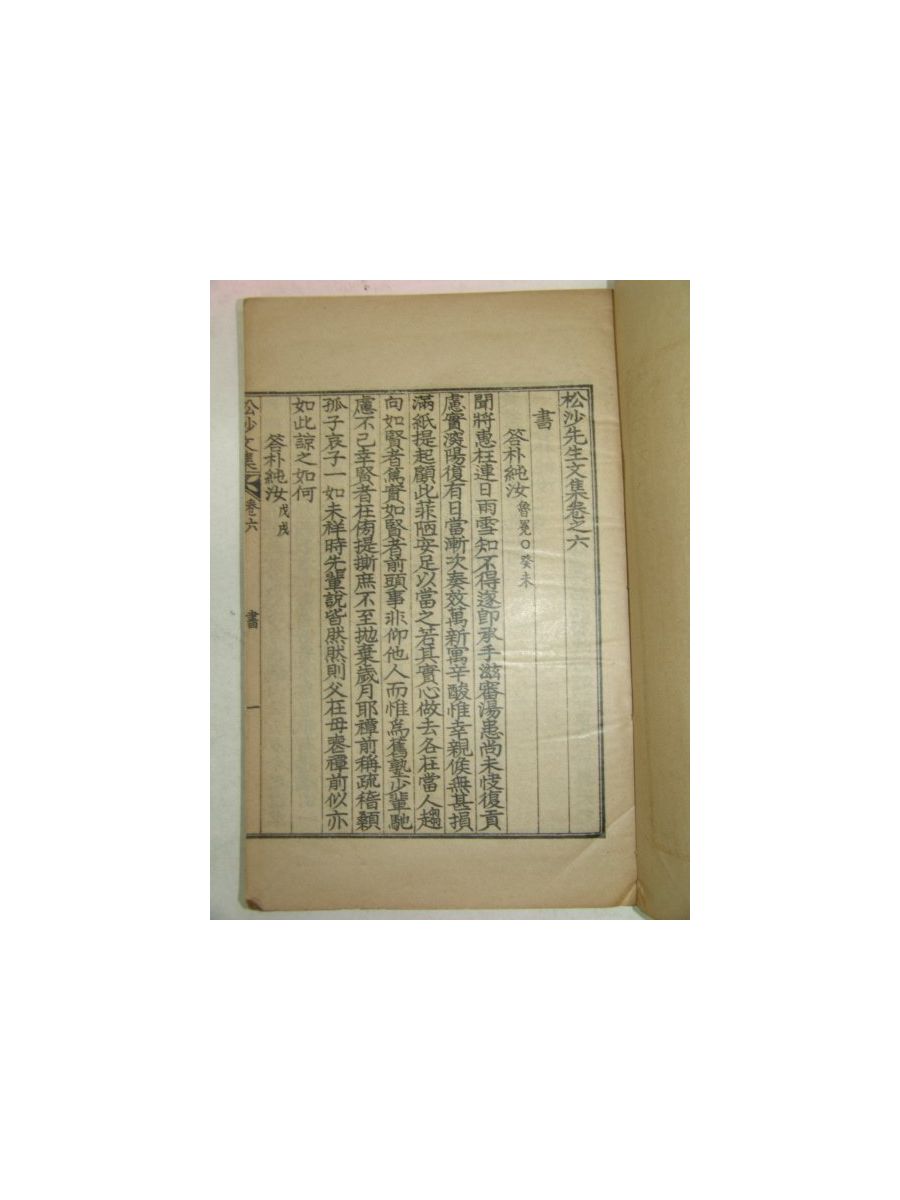 松沙先生文集卷之六
書
答朴純汝 魯冕○癸未
聞將惠枉連日雨雪知不得遂卽承手滋審湯患尚未快復貢
慮實深陽復有日當漸次奏效萬新寓辛酸惟幸親候無甚損
滿紙提起顧此菲陋安足以當之若其實心做去各在當人趨
向如賢者篤實如賢者前頭事非仰他人而惟爲舊塾少輩馳
慮不已幸賢者在傍提撕庶不至抛棄歲月耶禫前稱疏稽顙
孤子哀子一如未祥時先輩說皆然然則父在母喪禫前似亦
如此諒之如何
答朴純汝 戊戌
松沙文集 卷六 書 一